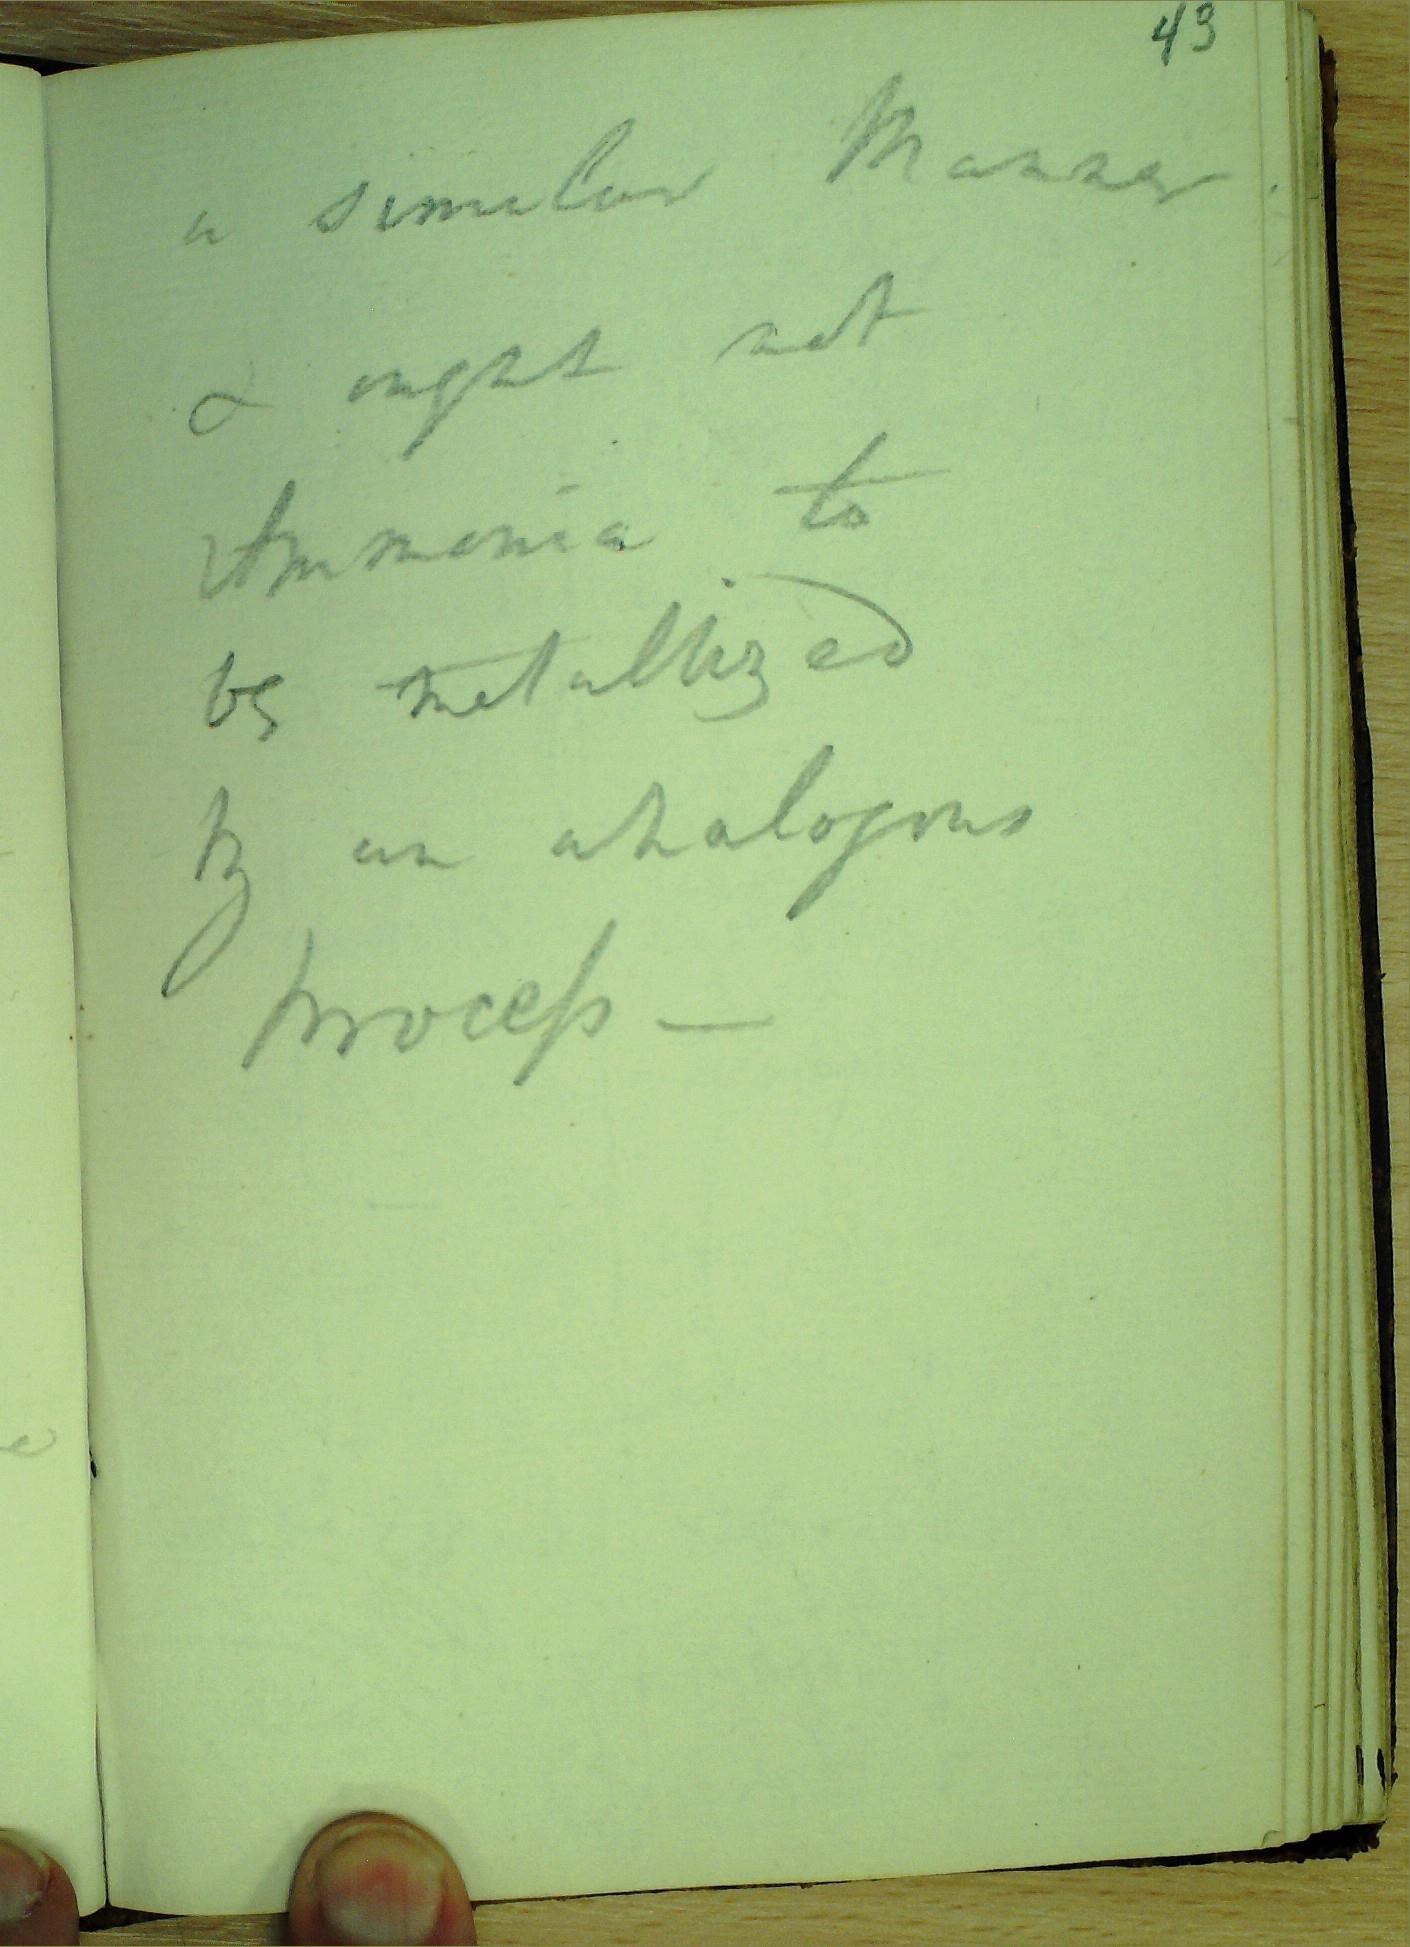 43
a similar Manner.
& ought not
Ammonia to
be metallized
by an analogous
process —